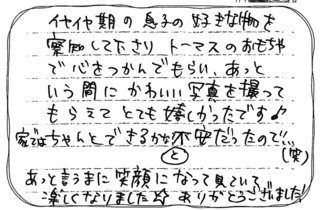 イヤイヤ期の息子の好きな物を
察知して下さり トーマスのおもちゃ
で心をつかんでもらい、あっと
いう間にかわいい写真を撮って
もらえて とても嬉しかったです♪
家ではちゃんとできるかな不安だったので…
と
(笑)
あっと言うまに笑顔になって見ていて、
楽しくなりました☆ ありがとうございました!